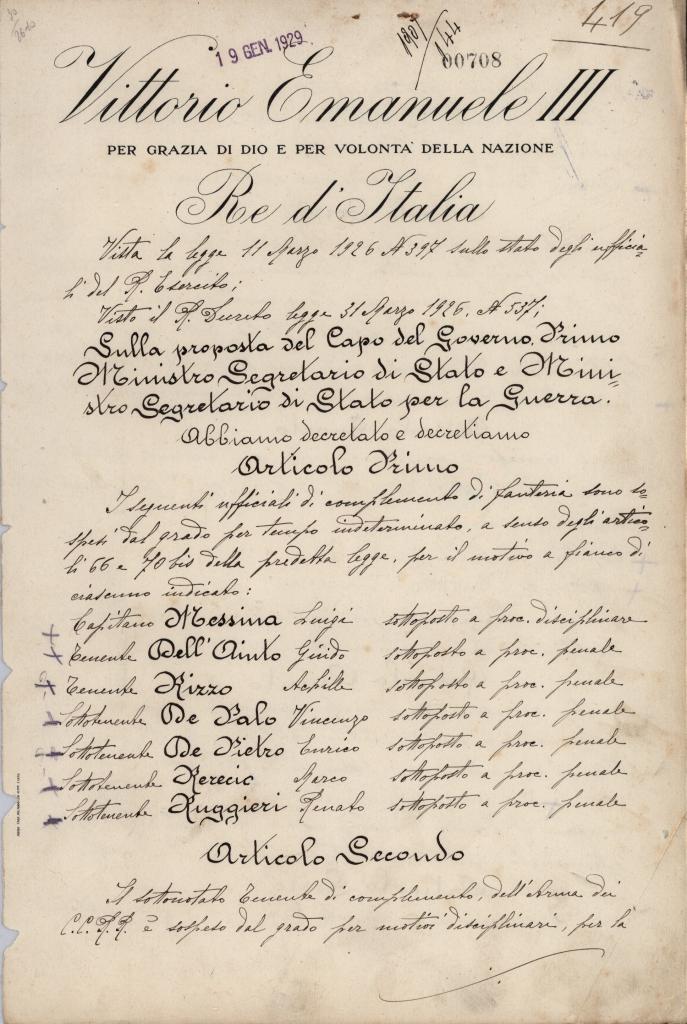 419
19 GEN. 1929
1907/144
00708
Vittorio Emanuele III
PER GRAZIA DI DIO E PER VOLONTA' DELLA NAZIONE
Re d'Italia
Vista la legge 11 Marzo 1926 N 397 sullo stato degli ufficia-
li del R. Esercito;
Visto il R. Decreto legge 31 Marzo 1926, N 537;
Sulla proposta del Capo del Governo, Primo
Ministro Segretario di Stato e Mini-
stro Segretario di Stato per la Guerra.
Abbiamo decretato e decretiamo
Articolo Primo
I seguenti ufficiali di complemento di fanteria sono so-
spesi dal grado per tempo indeterminato, a senso degli artico-
li 66 e 70 bis della predetta legge, per il motivo a fianco di
ciascuno indicato:
Capitano Messina Luigi sottoposto a proc. disciplinare
Tenente Dell'Ainto Guido sottoposto a proc. penale
Tenente Rizzo Achille sottoposto a proc. penale
Sottotenente De Palo Vincenzo sottoposto a proc. penale
Sottotenente De Pietro Enrico sottoposto a proc. penale
Sottotenente Rerecic Marco sottoposto a proc. penale
Sottotenente Ruggieri Renato sottoposto a proc. penale
Articolo Secondo
Il sottonotato Tenente di complemento, dell'Arma dei
C.C. R.R. è sospeso dal grado per motivi disciplinari, per la